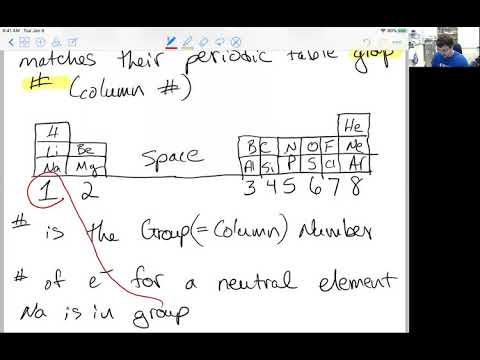 9:41 AM Tue Jan 9
90%
matches their periodic table group
# (column #)
H
He
Li Be B C N O F Ne
Na Mg space Al Si P S Cl Ar
1 2 3 4 5 6 7 8
# is the Group(=Column) Number
# of e⁻ for a neutral element
Na is in group